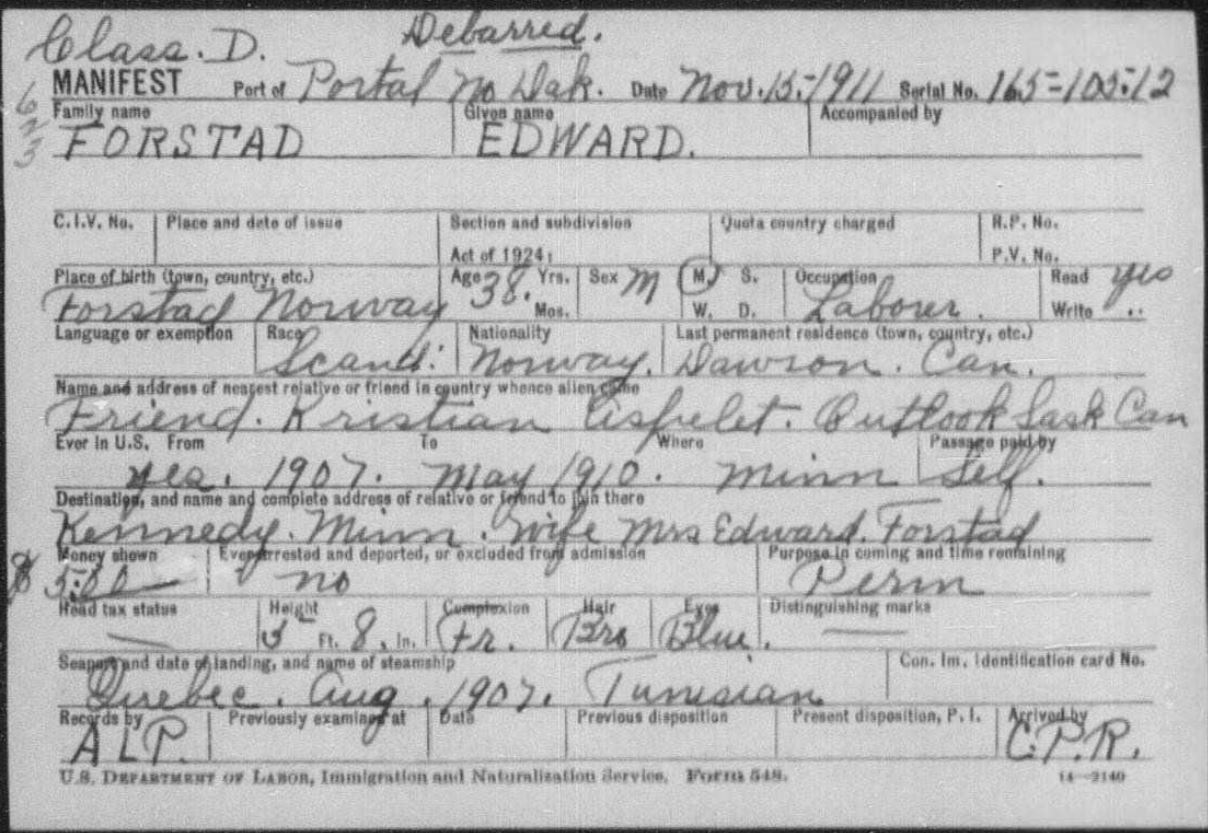 Class. D. Debarred.
MANIFEST Port of Portal No Dak. Date Nov. 15-1911 Serial No. 165-105-12
623
Family name Given name Accompanied by
FORSTAD EDWARD.
C.I.V. No. Place and date of issue Section and subdivision Quota country charged R.P. No.
Act of 1924: P.V. No.
Place of birth (town, country, etc.) Age 38. Yrs. Sex M M. S. Occupation Read yes
Forstad Norway Mos. W. D. Labourer. Write ..
Language or exemption Race Nationality Last permanent residence (town, country, etc.)
Scand. Norway. Dawson. Can.
Name and address of nearest relative or friend in country whence alien came
Friend. Kristian Outlook Sask Can
Ever in U.S. From To Where Passage paid by
yes. 1907. May 1910. Minn Self.
Destination, and name and complete address of relative or friend to join there
Kennedy. Minn. Wife Mrs Edward. Forstad
Money shown Ever arrested and deported, or excluded from admission Purpose in coming and time remaining
$ 5.00 no Perm
Head tax status Height Complexion Hair Eyes Distinguishing marks
— 5 Ft. 8. In. Fr. Bro Blue. —
Seaport and date of landing, and name of steamship Con. Im. Identification card No.
Quebec. Aug. 1907. Tunisian
Records by Previously examined at Date Previous disposition Present disposition, P. I. Arrived by
ALP. C.P.R.
U.S. DEPARTMENT OF LABOR, Immigration and Naturalization Service. FORM 548. 14—2140